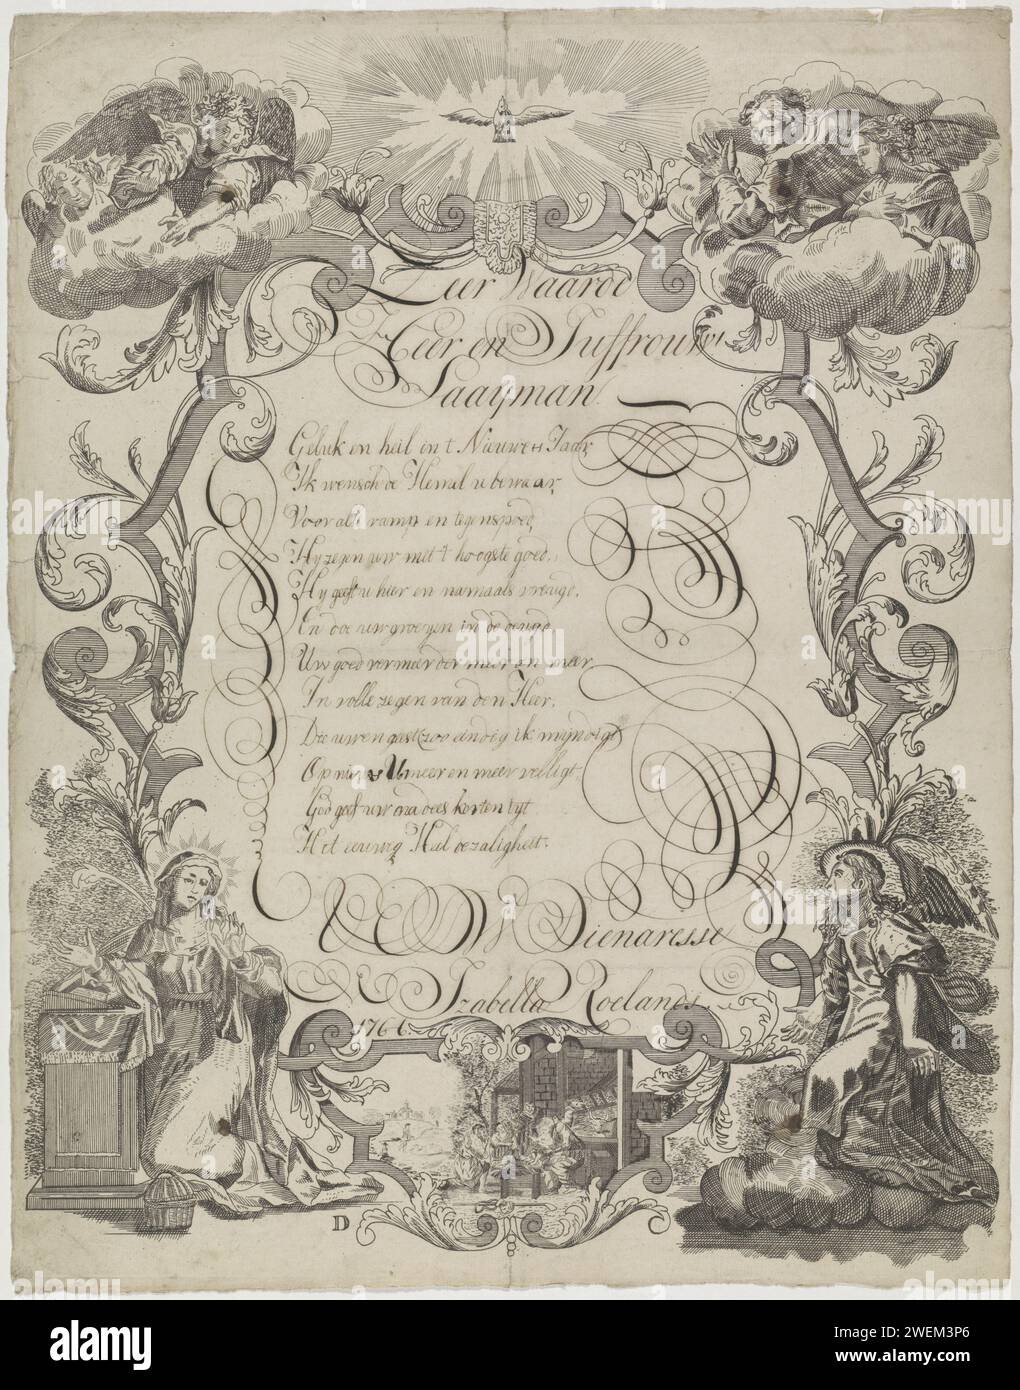 Zeer Waarde
Heer en Juffrouw
Laayman
Geluk en heil in t Nieuwe Jaar
Ik wensch de Hemel u bewaar,
Voor alle ramp en tegenspoed,
Hy zegen uw met 't hoogste goed,
Hy geeft u hier en namaals vreugd,
En doe uw groeyen in de deugd
Uw goed vermeerder meer en meer,
In volle zegen van den Heer,
Die uwen geest (zoo eindig ik mijn digt)
Op nieuw meer en meer verligt.
God geef uw na dees korten tyt
Het eeuwig Heil de zaligheit.
Dienaresse
Izabella Roelands
1766
D C
alamy
Image ID: 2WEM3P6
www.alamy.com